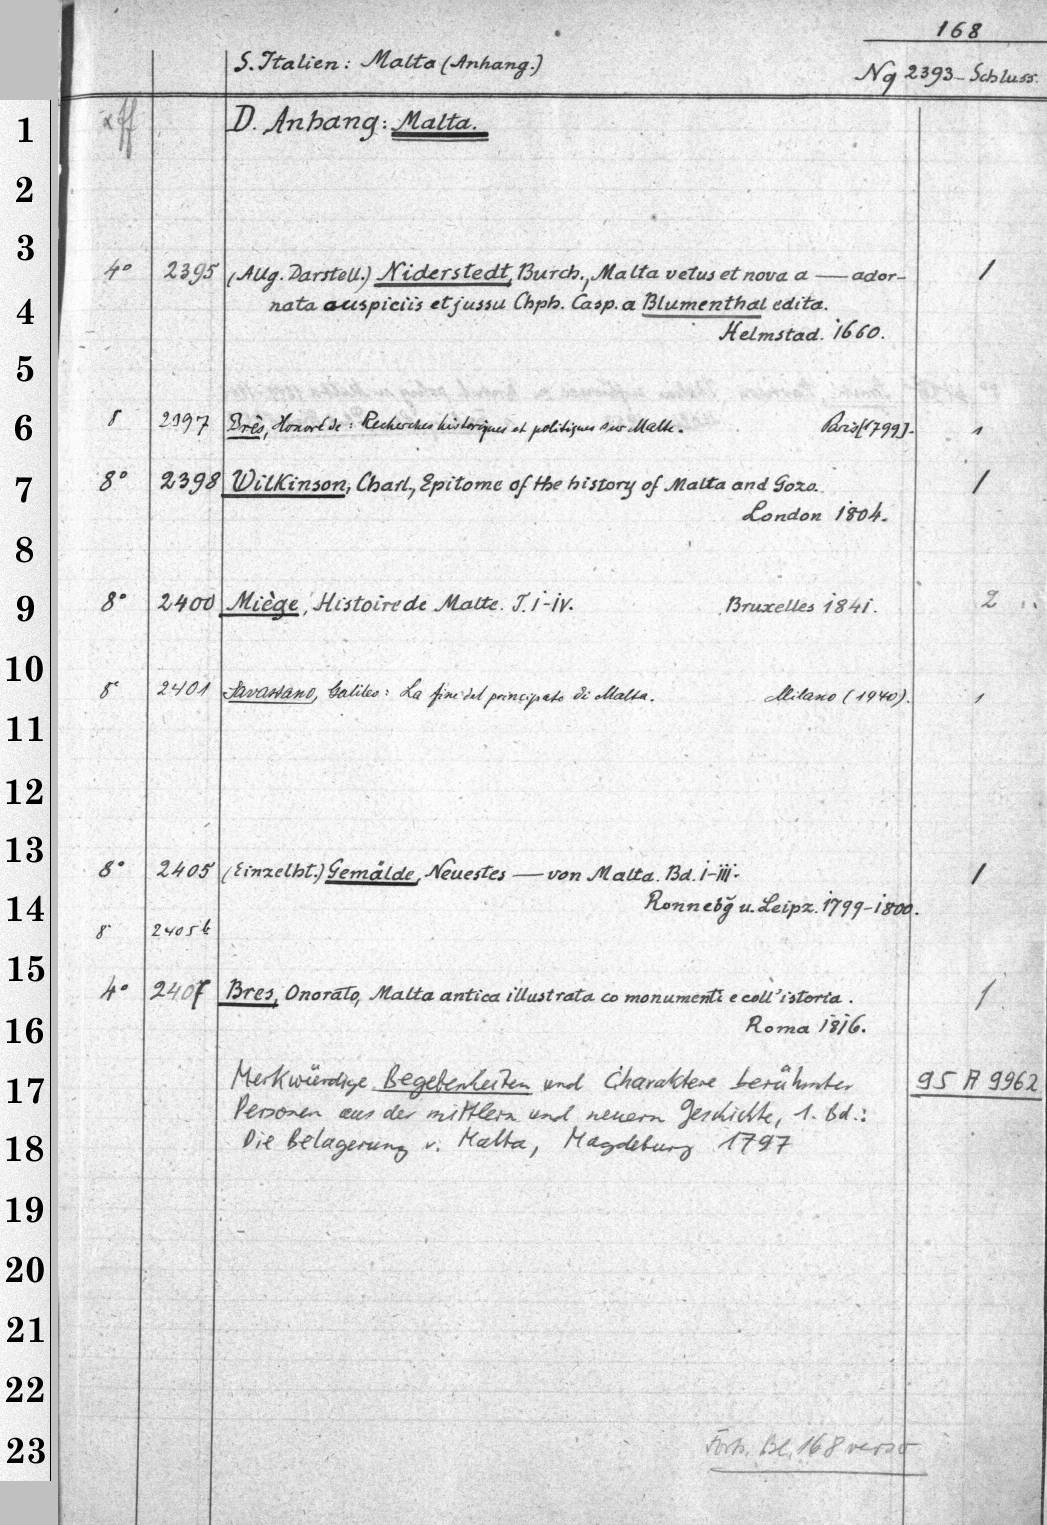 168
S. Italien: Malta (Anhang.)
Nq 2393 - Schluss.
1 D. Anhang: Malta.
2
3
4° 2395 (Allg. Darstell.) Niderstedt, Burch., Malta vetus et nova a — ador-
4 nata auspiciis et jussu Chph. Casp. a Blumenthal edita.
Helmstad. 1660. 1
5
6 8 2397 Bres, Honoré de: Recherches historiques et politiques sur Malte. Paris [1799]. 1
7 8° 2398 Wilkinson, Charl., Epitome of the history of Malta and Gozo. 1
London 1804.
8
9 8° 2400 Miège, Histoire de Malte. T. I-IV. Bruxelles 1841. 2
10
8° 2401 Savassano, Galileo: La fine del principato di Malta. Milano (1940). 1
11
12
13
8° 2405 (Einzelht.) Gemälde, Neuestes — von Malta. Bd. I-III. 1
14 Ronnebg u. Leipz. 1799-1800.
8° 2405 b
15
4° 2407 Bres, Onorato, Malta antica illustrata co monumenti e coll'istoria. 1
16 Roma 1816.
17 Merkwürdige Begebenheiten und Charaktere berühmter 95 A 9962
Personen aus der mittlern und neuern Geschichte, 1. Bd.:
18 Die Belagerung v. Malta, Magdeburg 1797
19
20
21
22
23 Forts. Bl. 168 verso